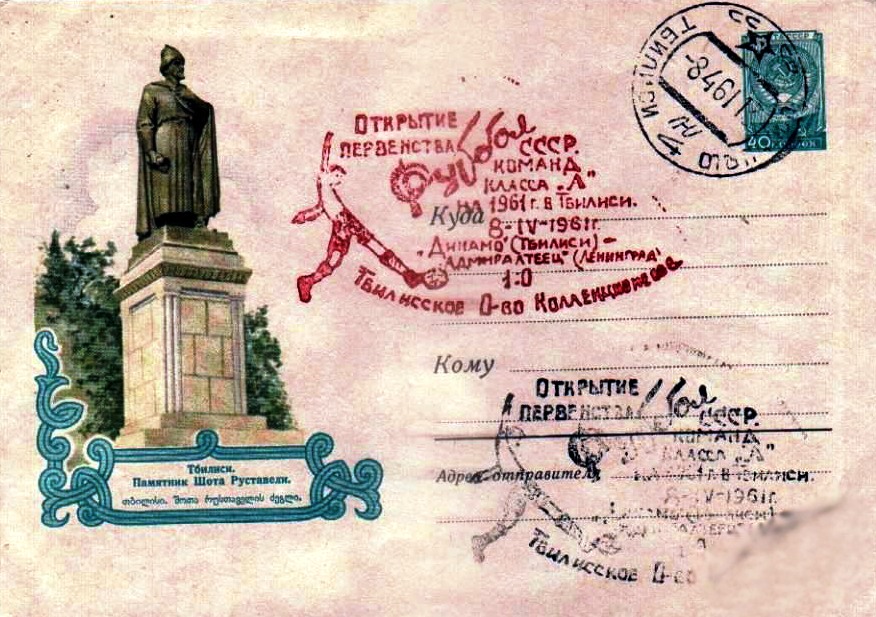 ТБИЛИСИ
-8461194
40 КОПЕЕК
ОТКРЫТИЕ
ПЕРВЕНСТВА
футбол
СССР.
КОМАНД
КЛАССА „А"
НА 1961 г. в Тбилиси.
8-IV-1961г.
„Динамо" (Тбилиси) –
„Адмиралтеец" (Ленинград)
1:0
Тбилисское О-во Коллекционеров
Куда
Кому
ОТКРЫТИЕ
ПЕРВЕНСТВА
СССР.
КОМАНД
КЛАССА „А"
НА 1961 г. в Тбилиси.
8-IV-1961г.
Тбилисское О-во
Адрес отправителя
Тбилиси.
Памятник Шота Руставели.
თბილისი. შოთა რუსთაველის ძეგლი.